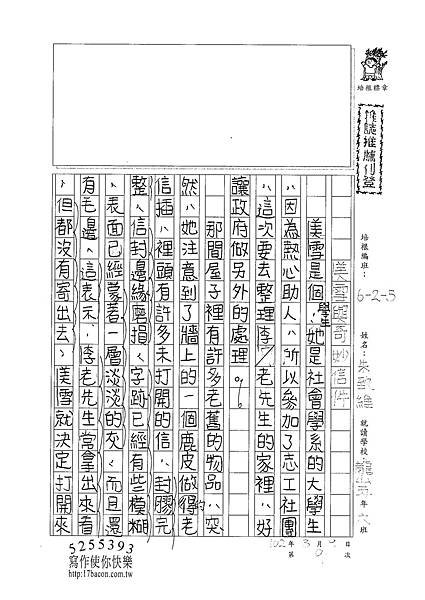 培根標章
推薦刊登
培根編班：6-2-5
姓名：朱
就讀學校 年 六 班
102年3月9日
第 9 次
美雪與奇妙信件
美雪是個學生，她是社會學系的大學生
，因為熱心助人，所以參加了志工社團
，這次要去整理李老先生的家裡，好
讓政府做另外的處理。
那間屋子裡有許多老舊的物品，突
然，她注意到了牆上的一個鹿皮做得的老
信插，裡頭有許多未打開的信，封膠完
整，信封邊緣磨損，字跡已經有些模糊
，表面已經蒙著一層淡淡的灰，而且還
有毛邊，這表示，李老先生常拿出來看
，但都沒有寄出去，美雪就決定打開來
5255393
寫作使你快樂
http://17bacon.com.tw